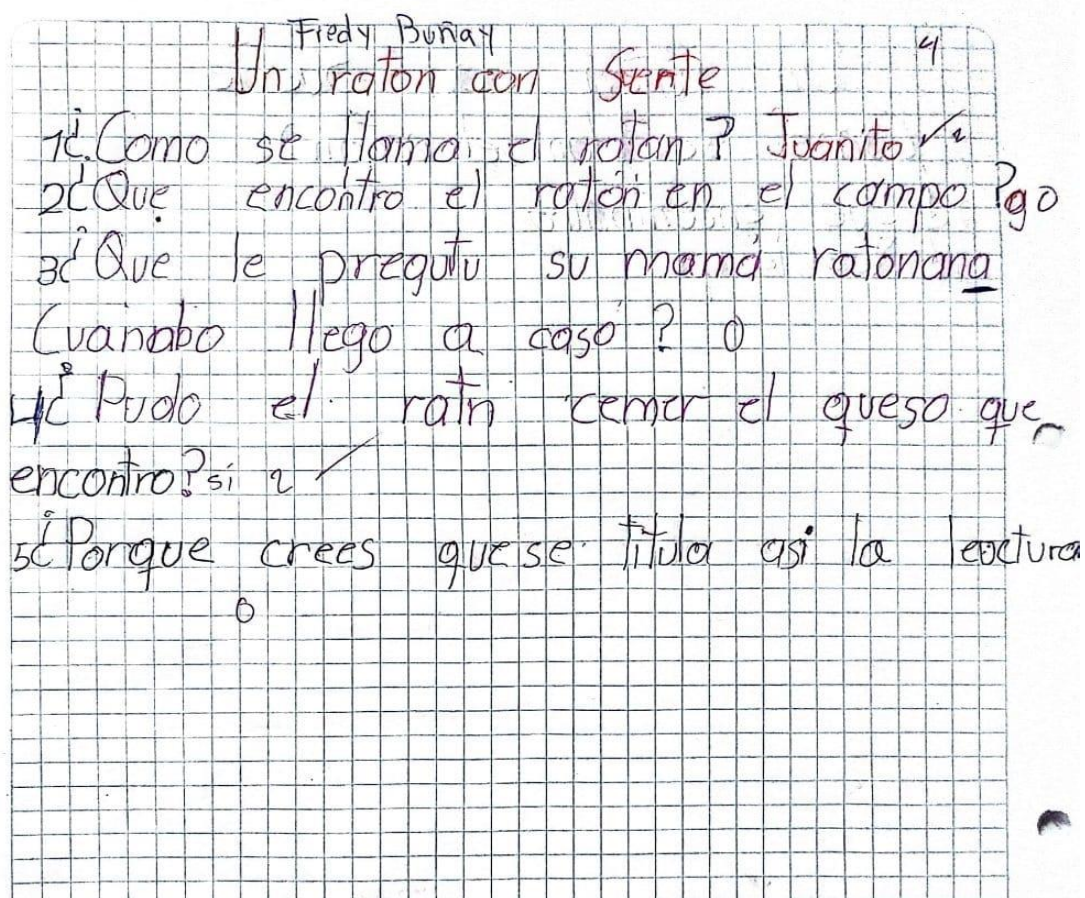 Fredy Buñay
4
Un raton con Suente
1¿.Como se llama el rotan? Juanito ✓2
2¿Que encontro el ratón en el campo?go
3¿Que le pregutu su mamá ratónana
Cuanabo llego a caso? 0
4¿Pudo el ratn cemer el queso que
encontro?si 2 ✓
5¿Porque crees quese Titula asi la leoctura
0